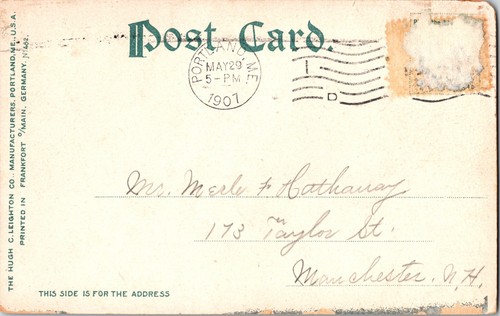 Post Card.
PORTLAND, ME.
MAY 29
5-PM
1907
I
D
Mr. Merle F Hathaway
173 Taylor St.
Manchester. N.H.
THIS SIDE IS FOR THE ADDRESS
THE HUGH C. LEIGHTON CO., MANUFACTURERS, PORTLAND, ME., U.S.A.
PRINTED IN FRANKFORT O/MAIN, GERMANY